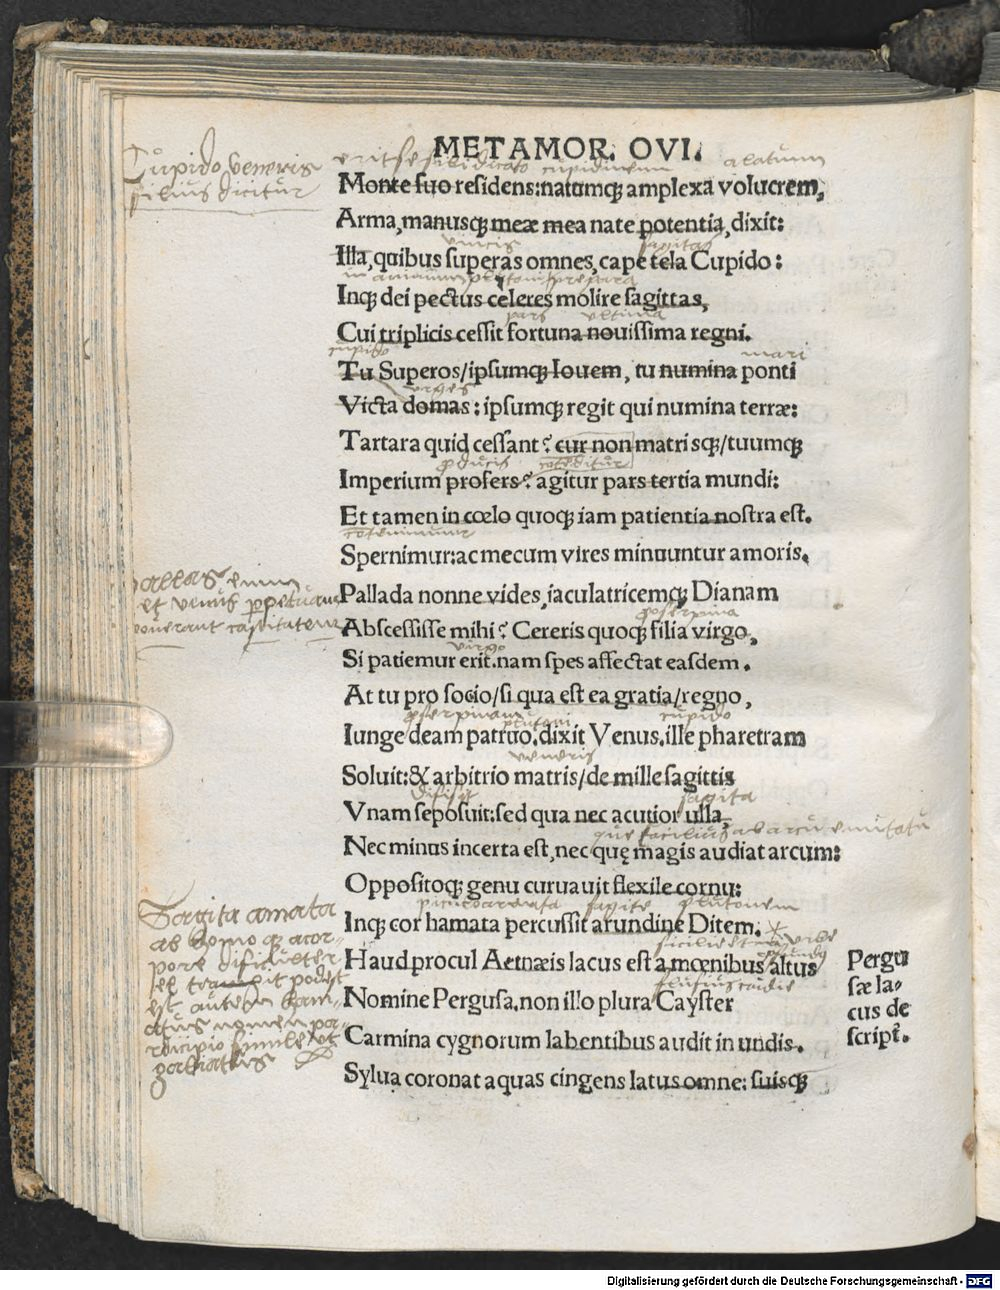 METAMOR. OVI.
Cupido veneris
filius dicitur
cupidinem alatum
Monte suo residens:natumqꝫ amplexa volucrem,
Arma,manusqꝫ meæ mea nate potentia,dixit:
vincis sagitas
Illa,quibus superas omnes,cape tela Cupido:
Inqꝫ dei pectus celeres molire sagittas,
pars ultima
Cui triplicis cessit fortuna nouissima regni.
cupido mari
Tu Superos/ipsumqꝫ Iouem, tu numina ponti
urges
Victa domas: ipsumqꝫ regit qui numina terræ:
Tartara quid cessant? cur non matrisqꝫ/tuumqꝫ
Imperium profers? agitur pars tertia mundi:
Et tamen in cœlo quoqꝫ iam patientia nostra est.
Spernimur:ac mecum vires minuuntur amoris.
Pallas enim
et venus
Pallada nonne vides,iaculatricemqꝫ Dianam
proserpina
Abscessisse mihi? Cereris quoqꝫ filia virgo,
virgo
Si patiemur erit.nam spes affectat easdem.
At tu pro socio/si qua est ea gratia/regno,
proserpinam plutoni cupido
Iunge deam patruo.dixit Venus.ille pharetram
veneris
Soluit:& arbitrio matris/de mille sagittis
sagita
Vnam seposuit:sed qua nec acutior ulla,
Nec minus incerta est,nec quę magis audiat arcum:
Oppositoqꝫ genu curuauit flexile cornu:
sagite plutonem
Inqꝫ cor hamata percussit arundine Ditem.
Sagita amata
Haud procul Aetnæis lacus est a mœnibus altus
Nomine Pergusa.non illo plura Cayster
Carmina cygnorum labentibus audit in undis.
Sylua coronat aquas cingens latus omne: suisqꝫ
Pergu
sæ la-
cus de
script̃.
Digitalisierung gefördert durch die Deutsche Forschungsgemeinschaft - DFG